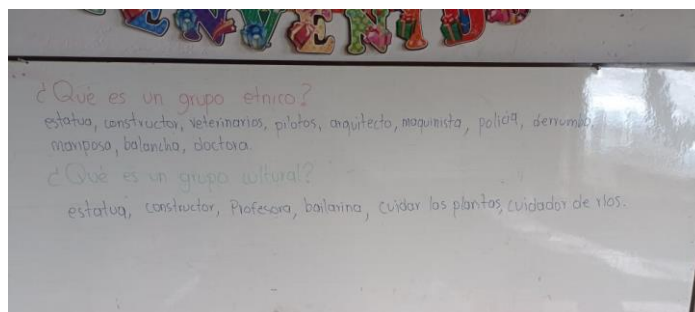 ENVENID
¿Qué es un grupo etnico?
estatua, constructor, veterinarios, pilotos, arquitecto, maquinista, policia, derrumbe,
mariposa, balancha, doctora.
¿Qué es un grupo cultural?
estatua, constructor, Profesora, bailarina, cuidar las plantas, cuidador de rios.